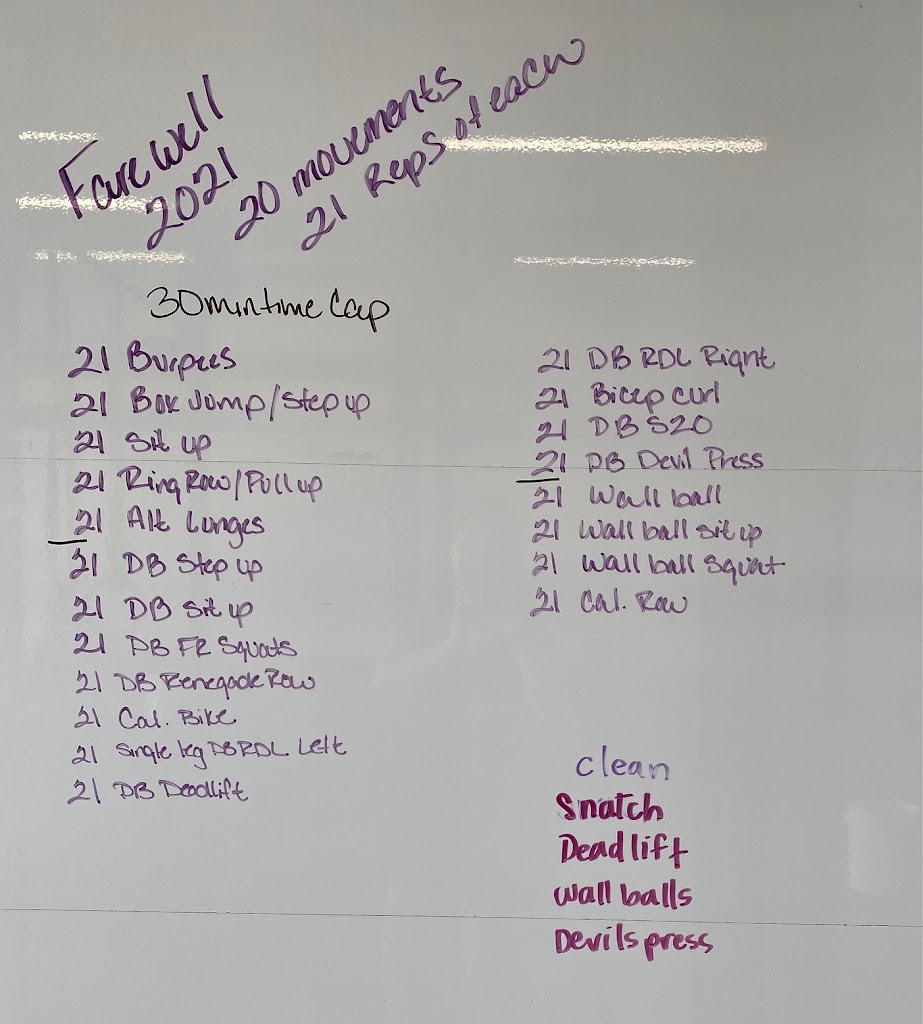 Farewell
2021
20 movements
21 Reps of each
30 min time Cap
21 Burpees
21 Box Jump/Step up
21 Sit up
21 Ring Row/Pull up
21 Alt Lunges
21 DB Step up
21 DB Sit up
21 DB FR Squats
21 DB Renegade Row
21 Cal. Bike
21 Single leg DB RDL Left
21 DB Deadlift
21 DB RDL Right
21 Bicep curl
21 DB S20
21 DB Devil Press
21 Wall ball
21 Wall ball sit up
21 Wall ball Squat
21 Cal. Row
clean
Snatch
Deadlift
wall balls
Devils press